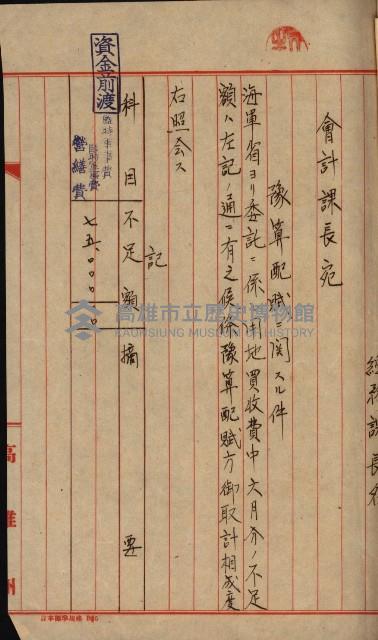 總務課長名
會計課長宛
豫算配賦ニ関スル件
海軍省ヨリ委託ニ係ル用地買收費中六月分ノ不足
額ハ左記ノ通ニ有之候條豫算配賦方御取計相成度
右照会ス
記
科目 不足額 摘要
資金前渡
臨時軍事費
營繕費
七五、〇〇〇
高雄市立歷史博物館
KAOHSIUNG MUSEUM OF HISTORY
高雄州